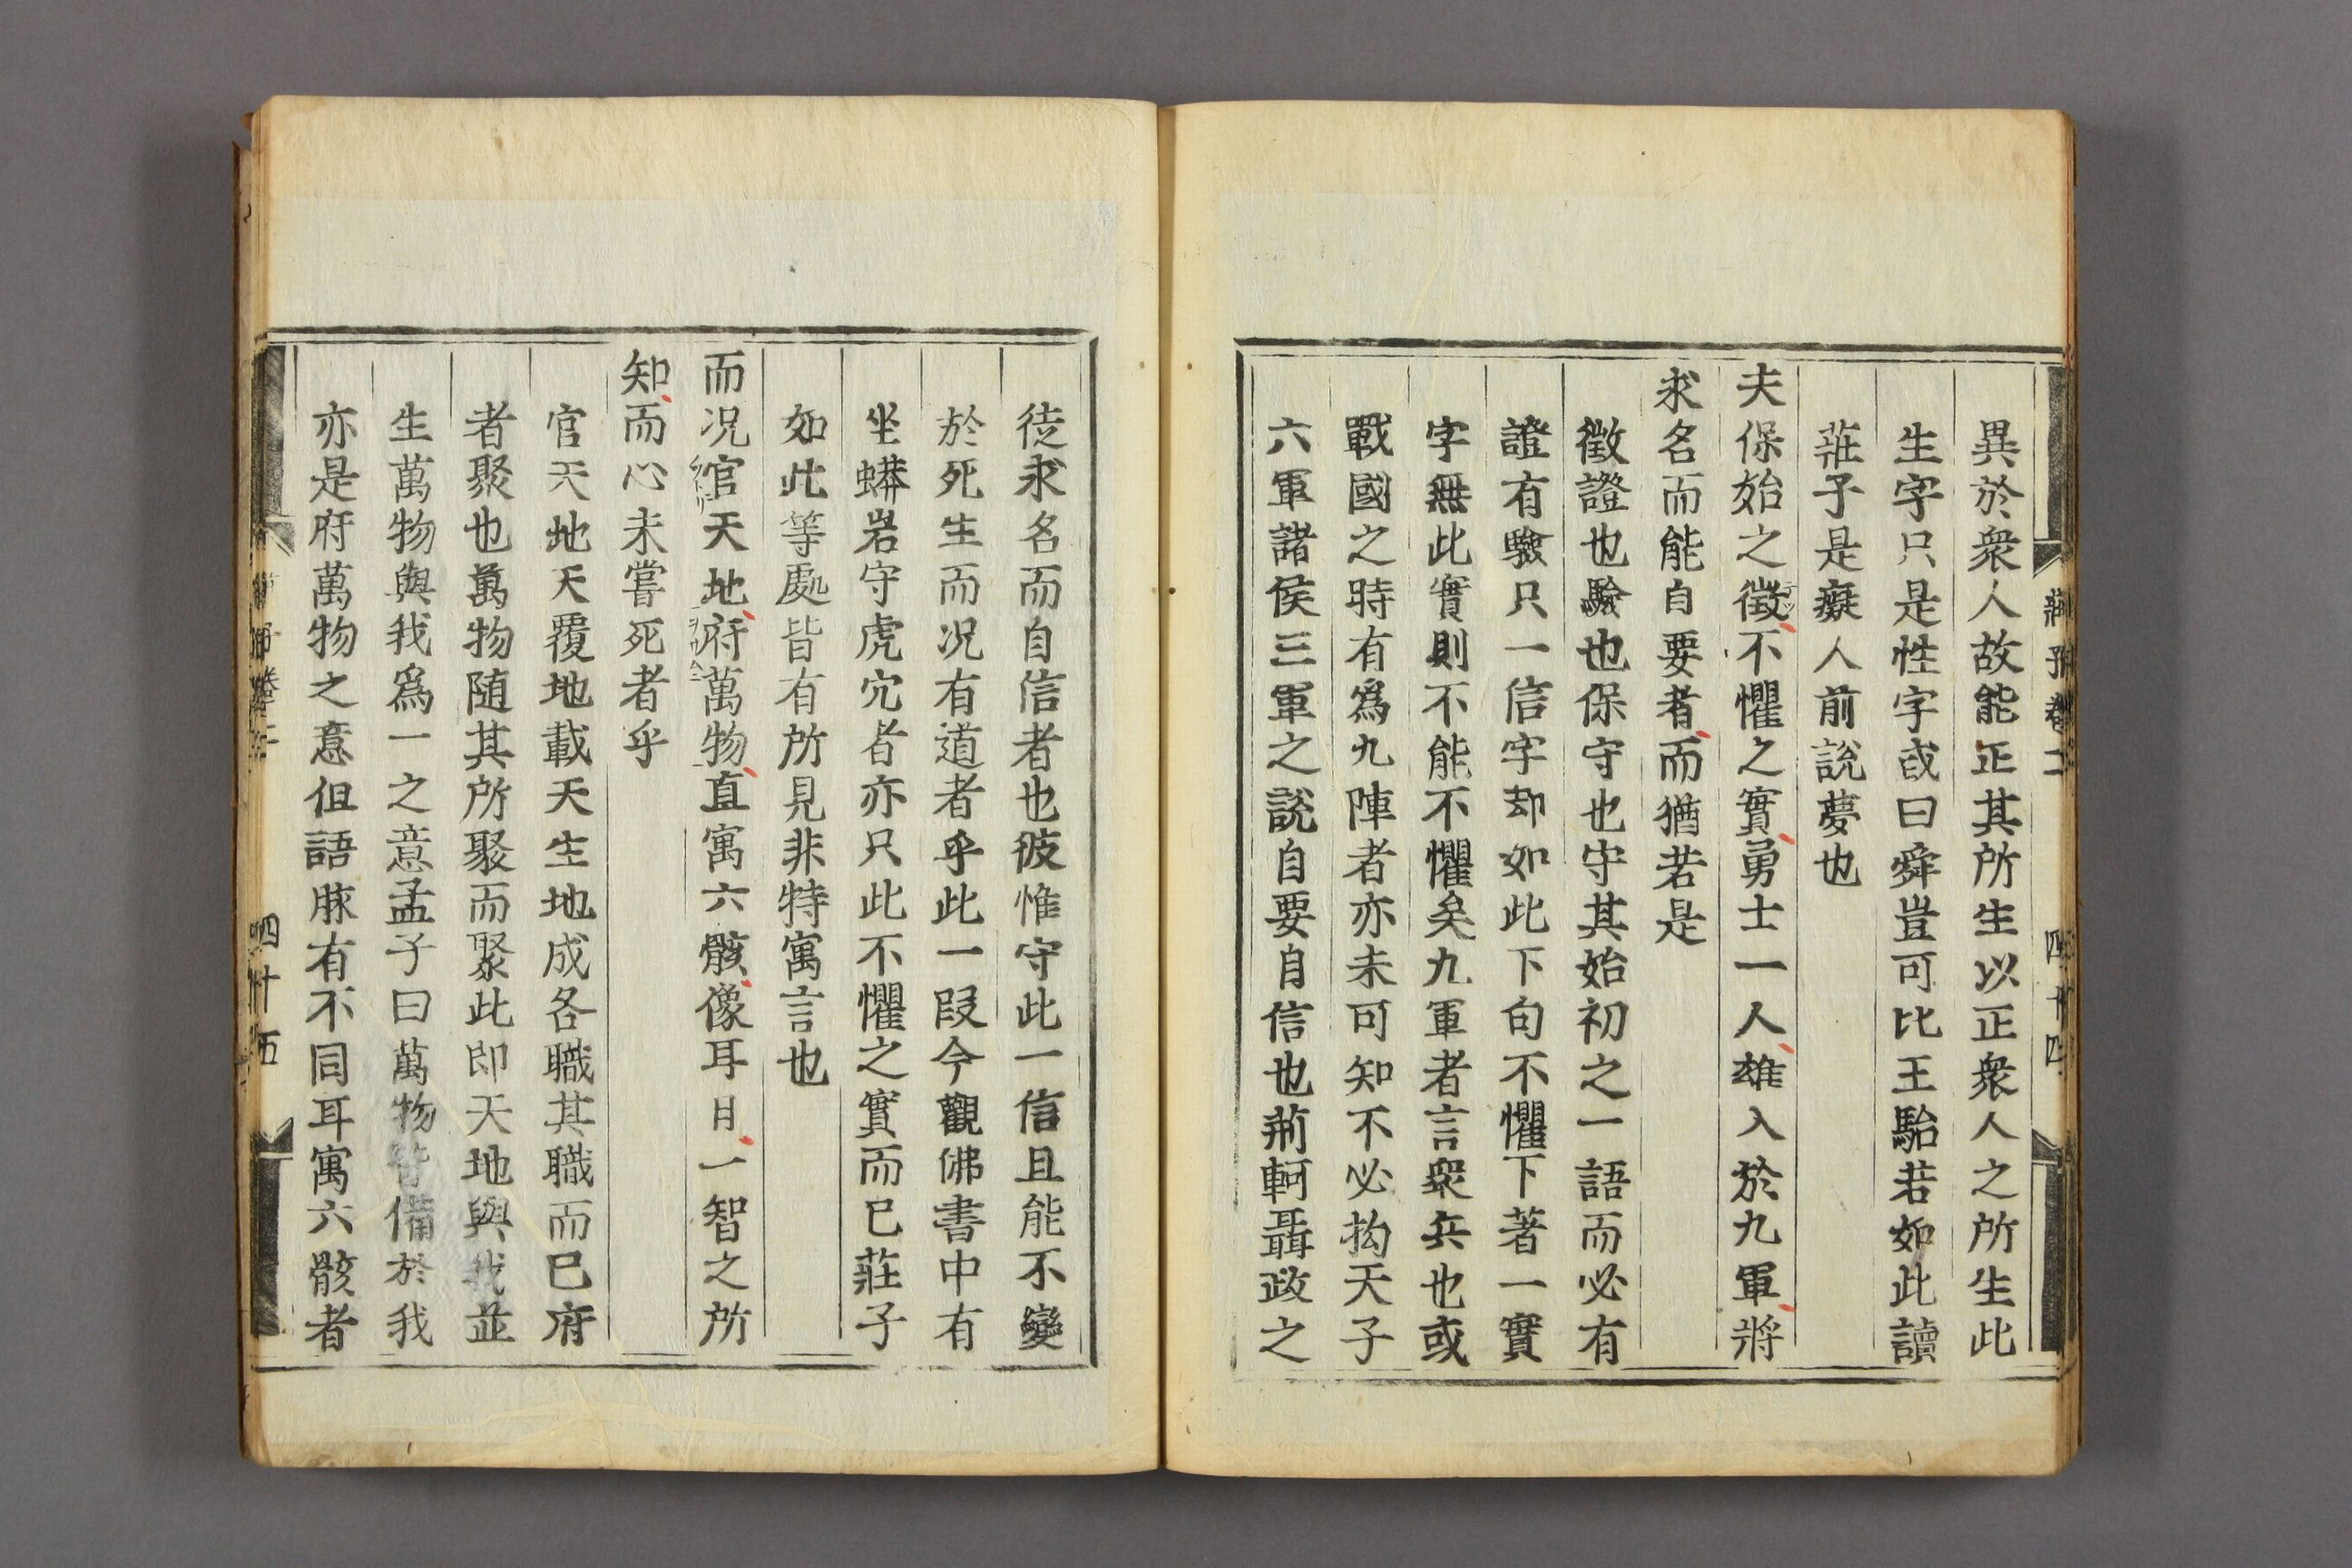 莊子卷二 四十四
異於衆人故能正其所生以正衆人之所生此
生字只是性字或曰舜豈可比王駘若如此讀
莊子是癡人前說夢也
夫保始之徵不懼之實勇士一人雄入於九軍將
求名而能自要者而猶若是
徵證也驗也保守也守其始初之一語而必有
證有驗只一信字却如此下句不懼下著一實
字無此實則不能不懼矣九軍者言衆兵也或
戰國之時有爲九陣者亦未可知不必拘天子
六軍諸侯三軍之說自要自信也荊軻聶政之
徒求名而自信者也彼惟守此一信且能不變
於死生而况有道者乎此一段今觀佛書中有
坐蟒岩守虎穴者亦只此不懼之實而已莊子
如此等處皆有所見非特寓言也
而况官天地府萬物直寓六骸像耳目一智之所
知而心未嘗死者乎
官天地天覆地載天生地成各職其職而已府
者聚也萬物随其所聚而聚此即天地與我並
生萬物與我爲一之意孟子曰萬物皆備於我
亦是府萬物之意但語脉有不同耳寓六骸者
四十五